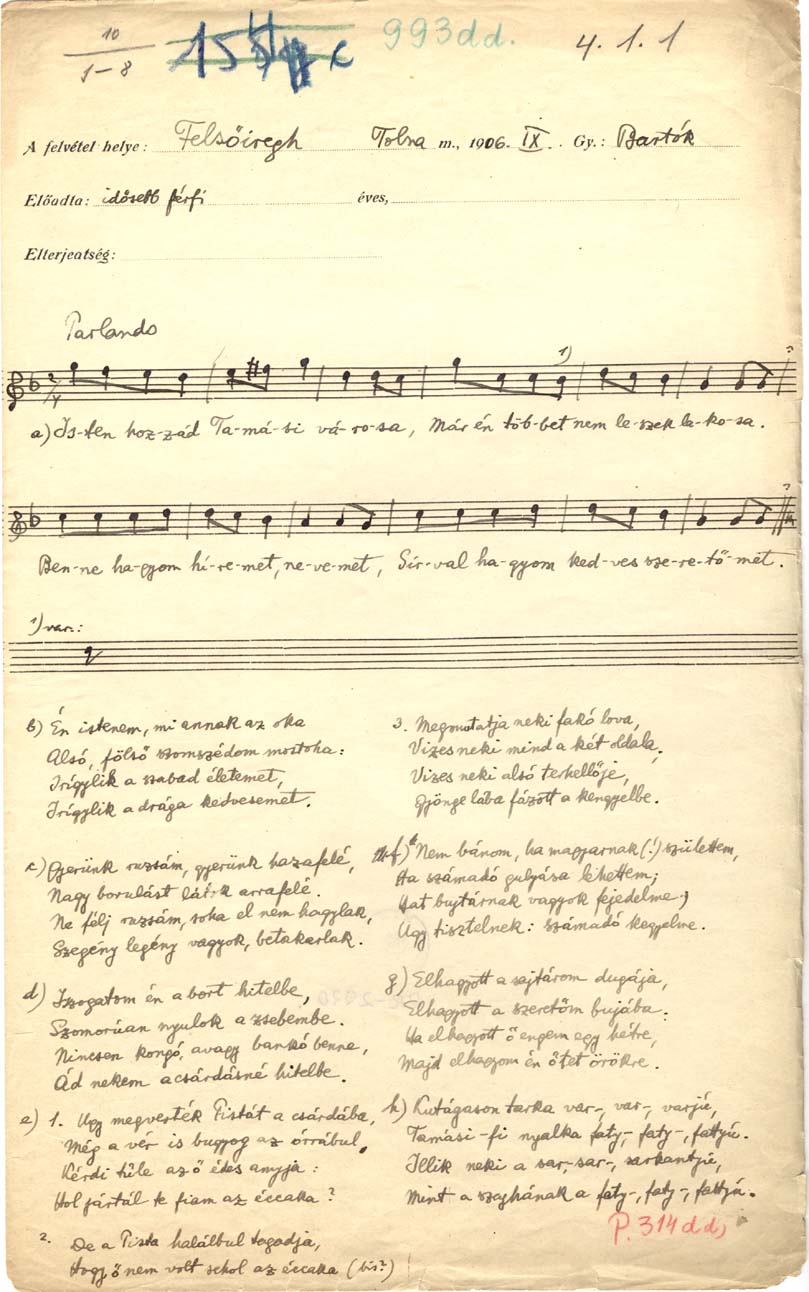 10
1–8
993dd.
4. 1. 1
A felvétel helye: Felsőiregh Tolna m., 1906. IX. Gy.: Bartók
Előadta: idősebb férfi éves,
Elterjedtség:
Parlando
2/4
1)
?
a) Is-ten hoz-zád Ta-má-si vá-ro-sa, Már én töb-bet nem le-szek la-ko-sa.
?
Ben-ne ha-gyom hí-re-met, ne-ve-met, Sír-val ha-gyom ked-ves sze-re-tő-met.
1) var.:
b) Én istenem, mi annak az oka
Alsó, fölső szomszédom mostoha:
Irígylik a szabad életemet,
Irígylik a drága kedvesemet.
c) Gyerünk ruzsám, gyerünk hazafelé,
Nagy borulást látok arrafelé.
Ne félj ruzsám, soha el nem hagylak,
Szegény legény vagyok, betakarlak.
d) Iszogatom én a bort hitelbe,
Szomorúan nyulok a zsebembe.
Nincsen kongó, avagy bankó benne,
Ád nekem a csárdásné hitelbe.
e) 1. Ugy megverték Pistát a csárdába,
Még a vér is bugyog az órrábul,
Kérdi tűle az ő édes anyja:
Hol jártál te fiam az éccaka?
2. De a Pista halálbul tagadja,
Hogy ő nem volt sehol az éccaka (bis?)
3. Megmutatja neki fakó lova,
Vizes neki mind a két oldala,
Vizes neki alsó terhellője,
Gyönge lába fázott a kengyelbe.
f) Nem bánom, ha magyarnak (!) születtem,
Ha számadó gulyása lehettem;
Hat bujtárnak vagyok fejedelme,
Ugy tisztelnek: számadó kegyelme.
g) Elhagyott a sajtárom dugája,
Elhagyott a szeretőm bujába.
Ha elhagyott ő engem egy hétre,
Majd elhagyom én őtet örökre.
h) Kutágason tarka var-, var-, varjú,
Tamási-fi nyalka faty-, faty-, fattyú.
Illik neki a sar-, sar-, sarkantyú,
Mint a szajhának a faty-, faty-, fattyú.
P. 314dd)